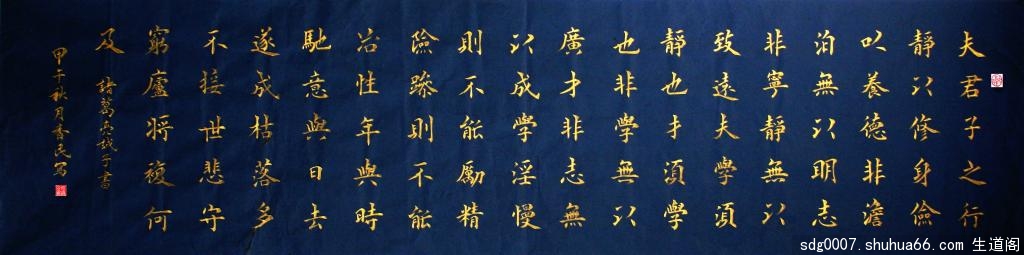 夫君子之行
靜以修身儉
以養德非澹
泊無以明志
非寧靜無以
致遠夫學須
靜也才須學
也非學無以
廣才非志無
以成學淫慢
則不能勵精
險躁則不能
冶性年與時
馳意與日去
遂成枯落多
不接世悲守
窮廬將複何
及
諸葛亮誡子書
甲午秋月民寫
sdg0007.shuhua66.com 生道阁